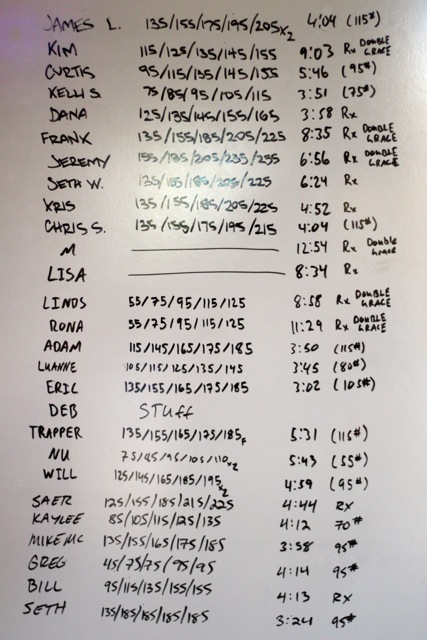 JAMES L. 135/155/175/195/205x2 4:04 (115#)
KIM 115/125/135/145/155 9:03 Rx DOUBLE GRACE
CURTIS 95/115/135/145/155 5:46 (95#)
KELLI S. 75/85/95/105/115 3:51 (75#)
DANA 125/135/145/155/165 3:58 Rx
FRANK 135/155/185/205/225 8:35 Rx DOUBLE GRACE
JEREMY 155/185/205/235/255 6:56 Rx DOUBLE GRACE
SETH W. 135/155/185/205/225 6:24 Rx
KRIS 135/155/185/205/225 4:52 Rx
CHRIS S. 135/155/175/195/215 4:04 (115#)
M 12:54 Rx Double Grace
LISA 8:34 Rx
LINDS 55/75/95/115/125 8:58 Rx DOUBLE GRACE
RONA 55/75/95/115/125 11:29 Rx DOUBLE GRACE
ADAM 115/145/165/175/185 3:50 (115#)
LUANNE 105/115/125/135/145 3:45 (80#)
ERIC 135/155/165/175/185 3:02 (105#)
DEB STUFF
TRAPPER 135/155/165/175/185F 5:31 (115#)
NU 75/85/95/105/110x2 5:43 (55#)
WILL 125/145/165/185/195x2 4:59 (95#)
SAER 125/155/185/215/225 4:44 RX
KAYLEE 85/105/115/125/135 4:12 70#
MIKE MC 135/155/165/175/185 3:58 95#
GREG 45/75/75/95/95 4:14 95#
BILL 95/115/135/155/155 4:13 RX
SETH 135/185/185/185/185 3:24 95#